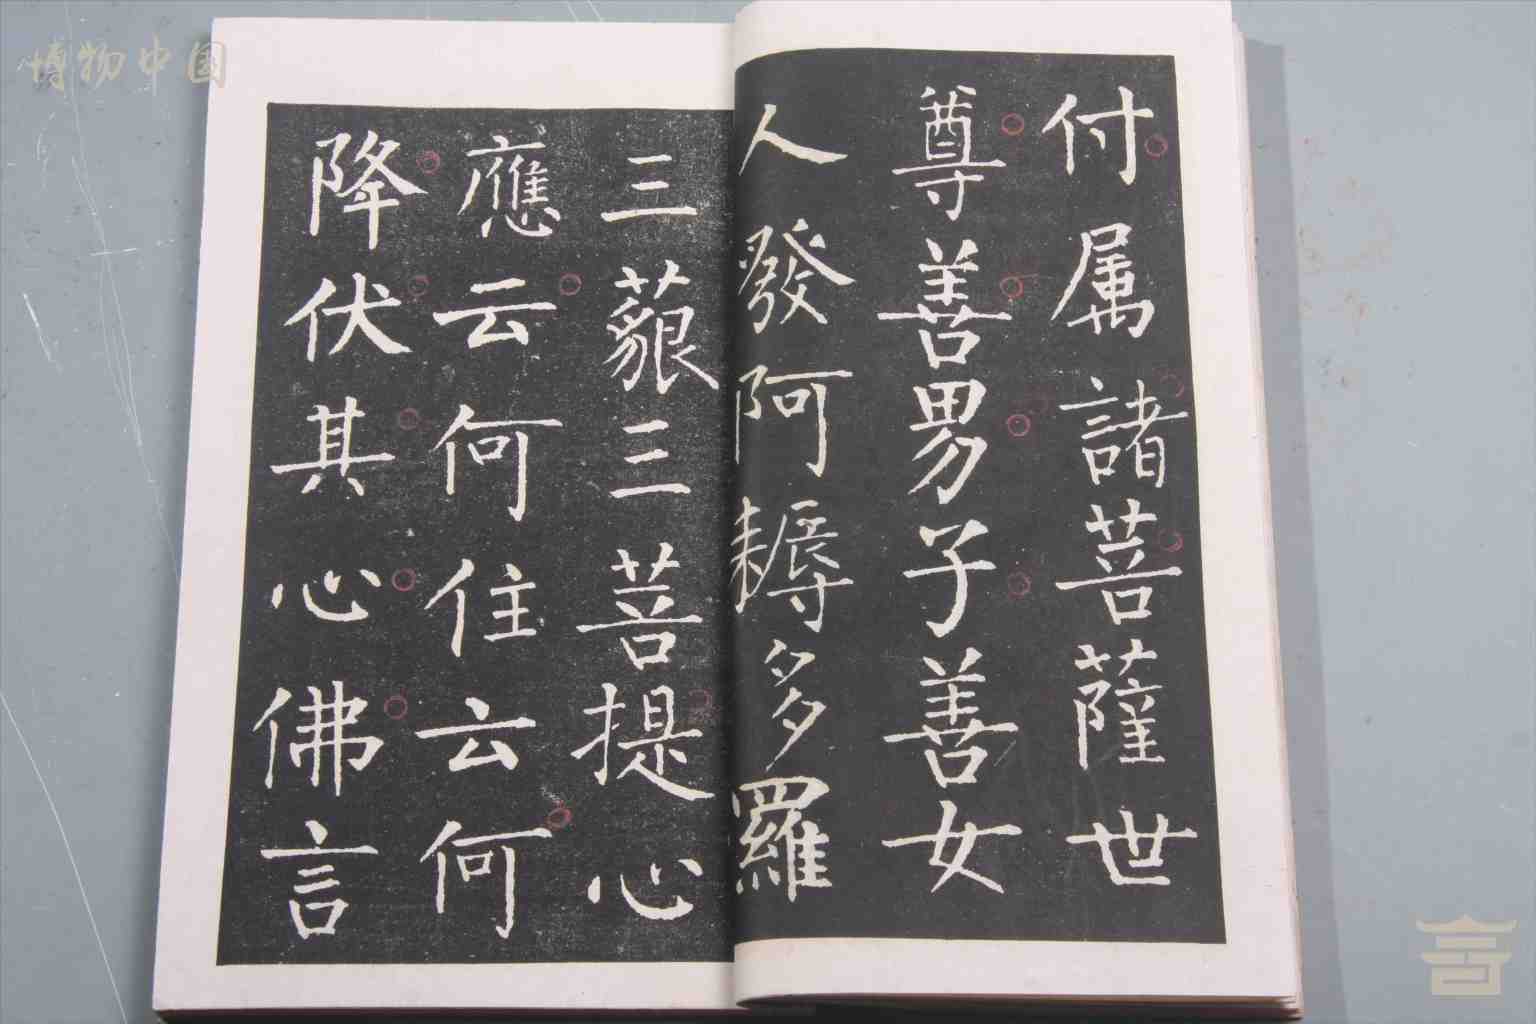 付属諸菩薩世
尊善男子善女
人發阿耨多羅
三藐三菩提心
應云何住云何
降伏其心佛言
博物中国